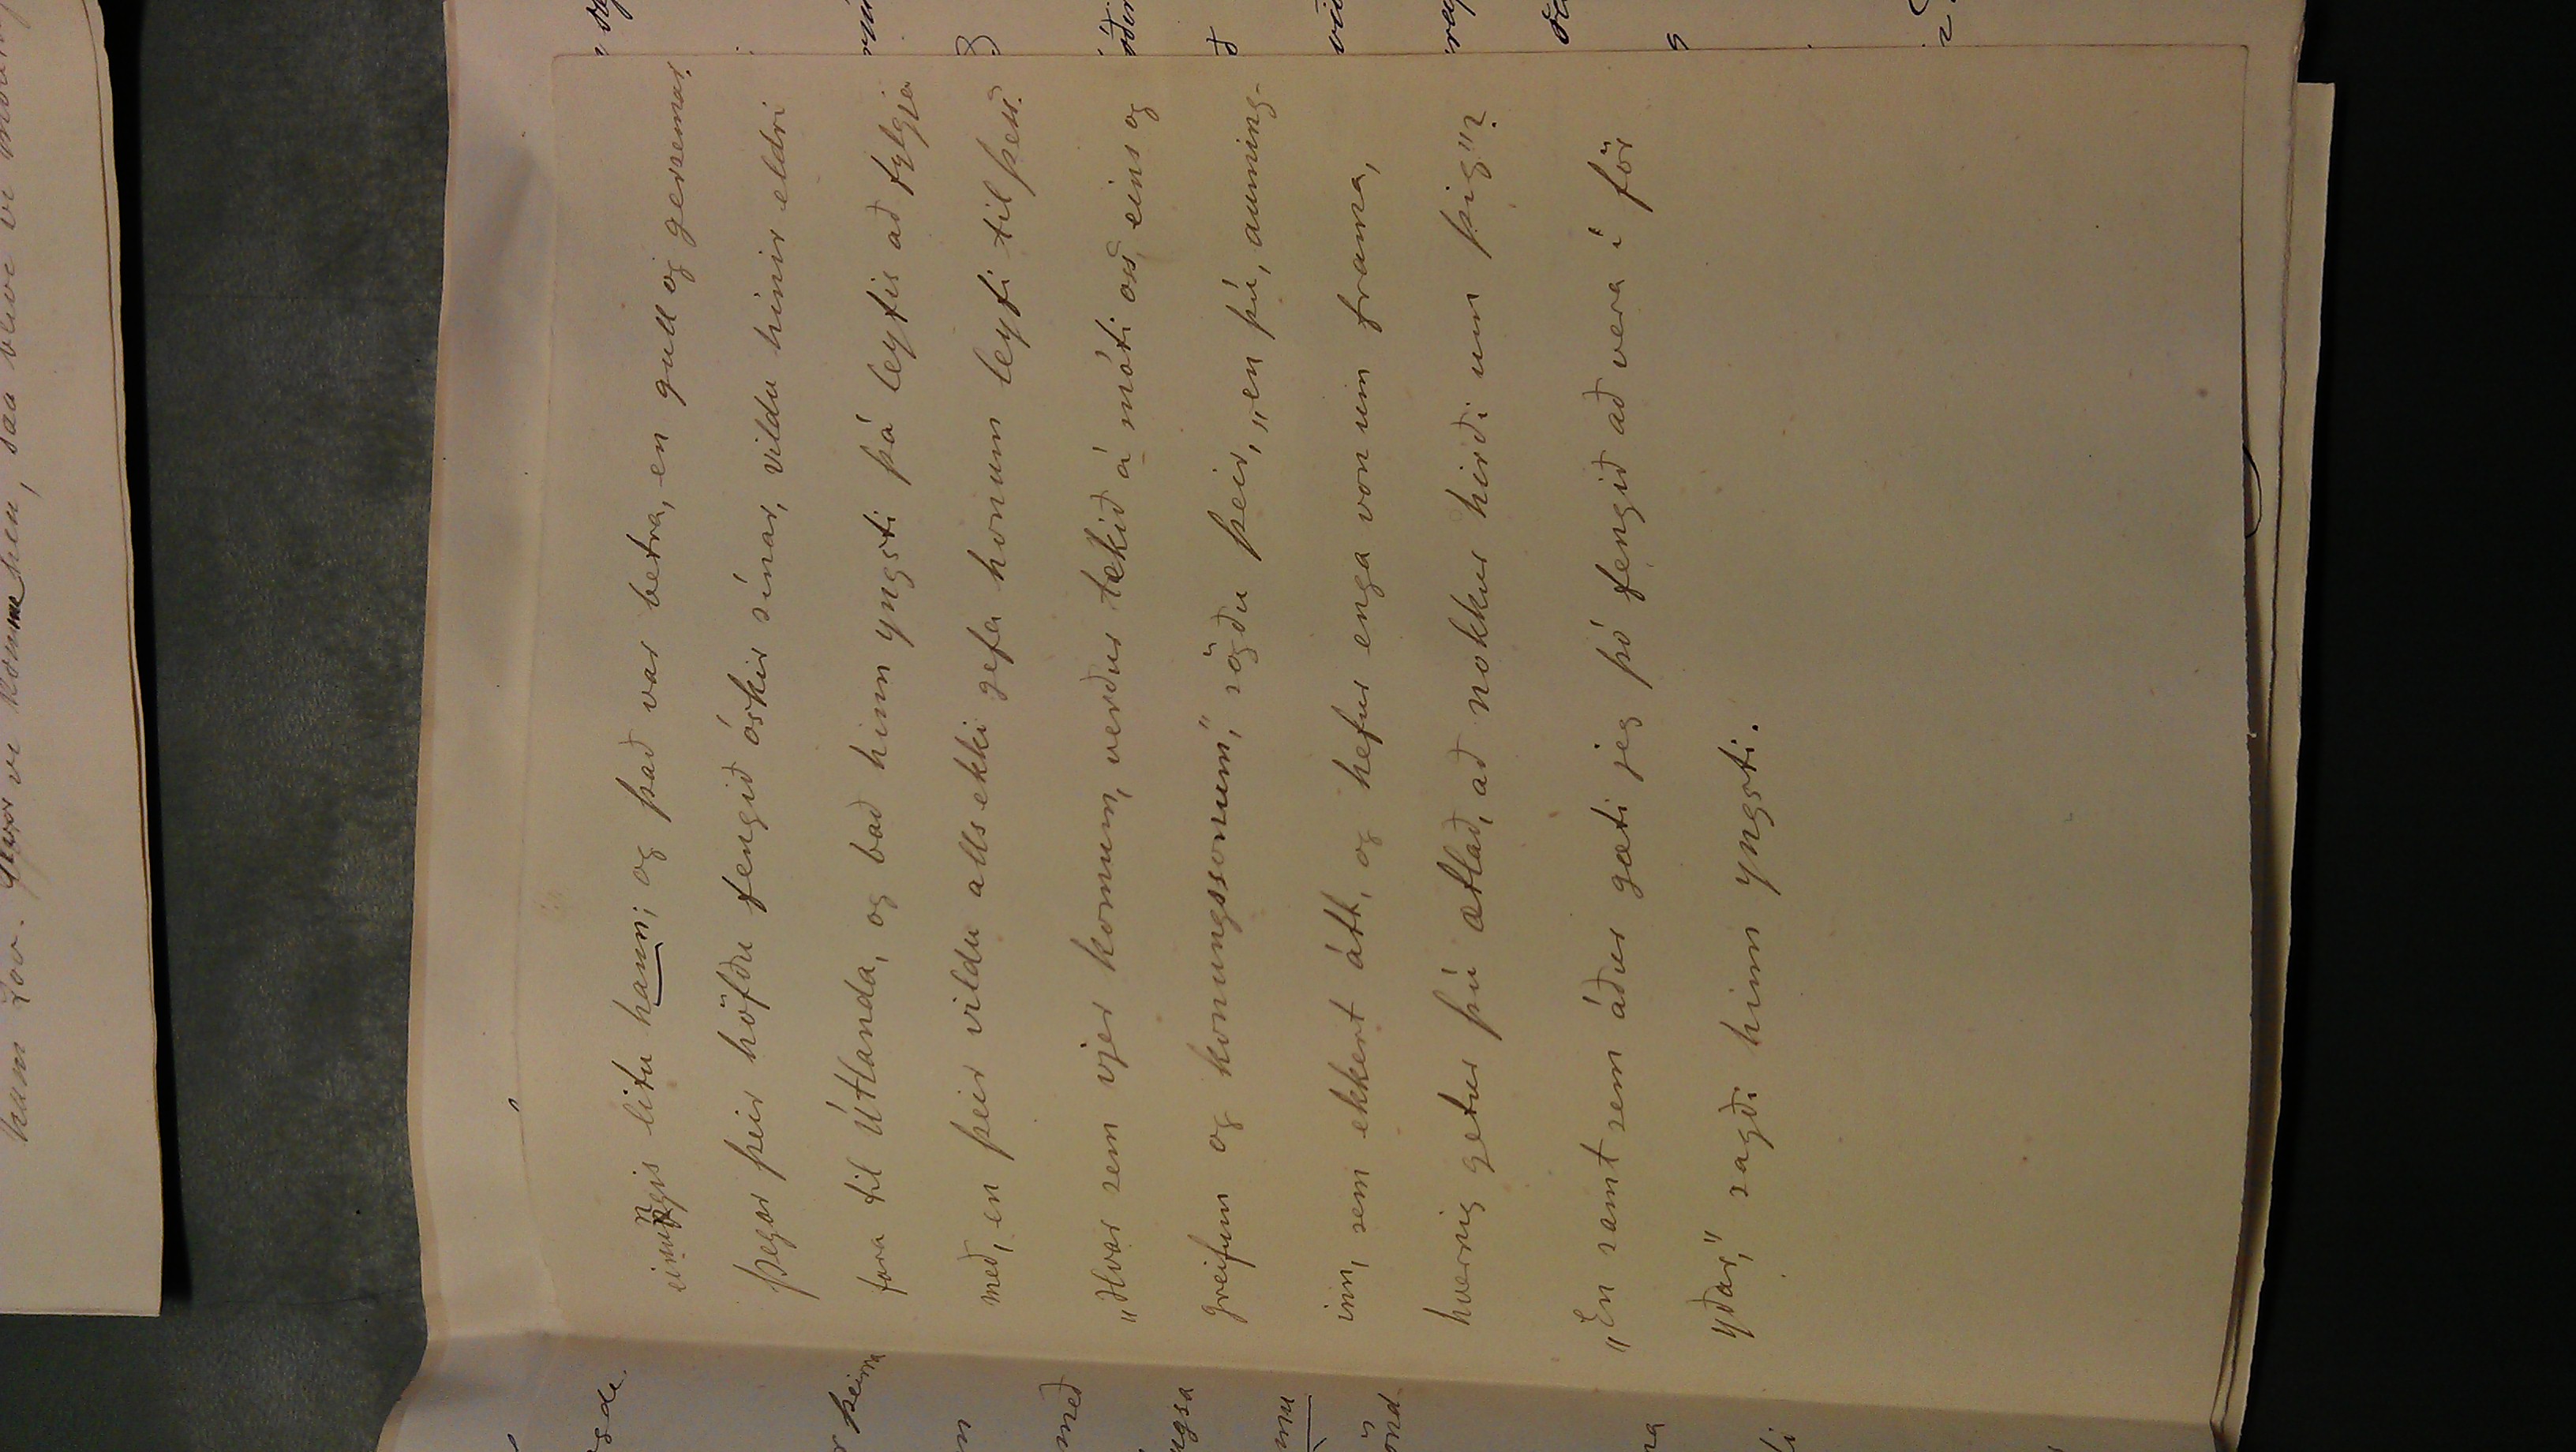 einngis litu hann; og það var betra, en gull og gersemar.
Þegar þeir höfðu fengið óskir sínar, vildu hinir eldri
fara til Útlanda, og bað hinn yngsti þá leyfis að fylgja
með, en þeir vildu alls ekki gefa honum leyfi til þess.
„Hvar sem vjer komum, verður tekið á móti oss, eins og
greifum og konungssonum“, sögðu þeir, „en þú, auming-
inn, sem ekkert átt, og hefur enga von um frama,
hvernig getur þú ætlað, að nokkur hirði um þig“?
„En samt sem áður gæti jeg þó fengið að vera í för
yðar“, sagði hinn yngsti.